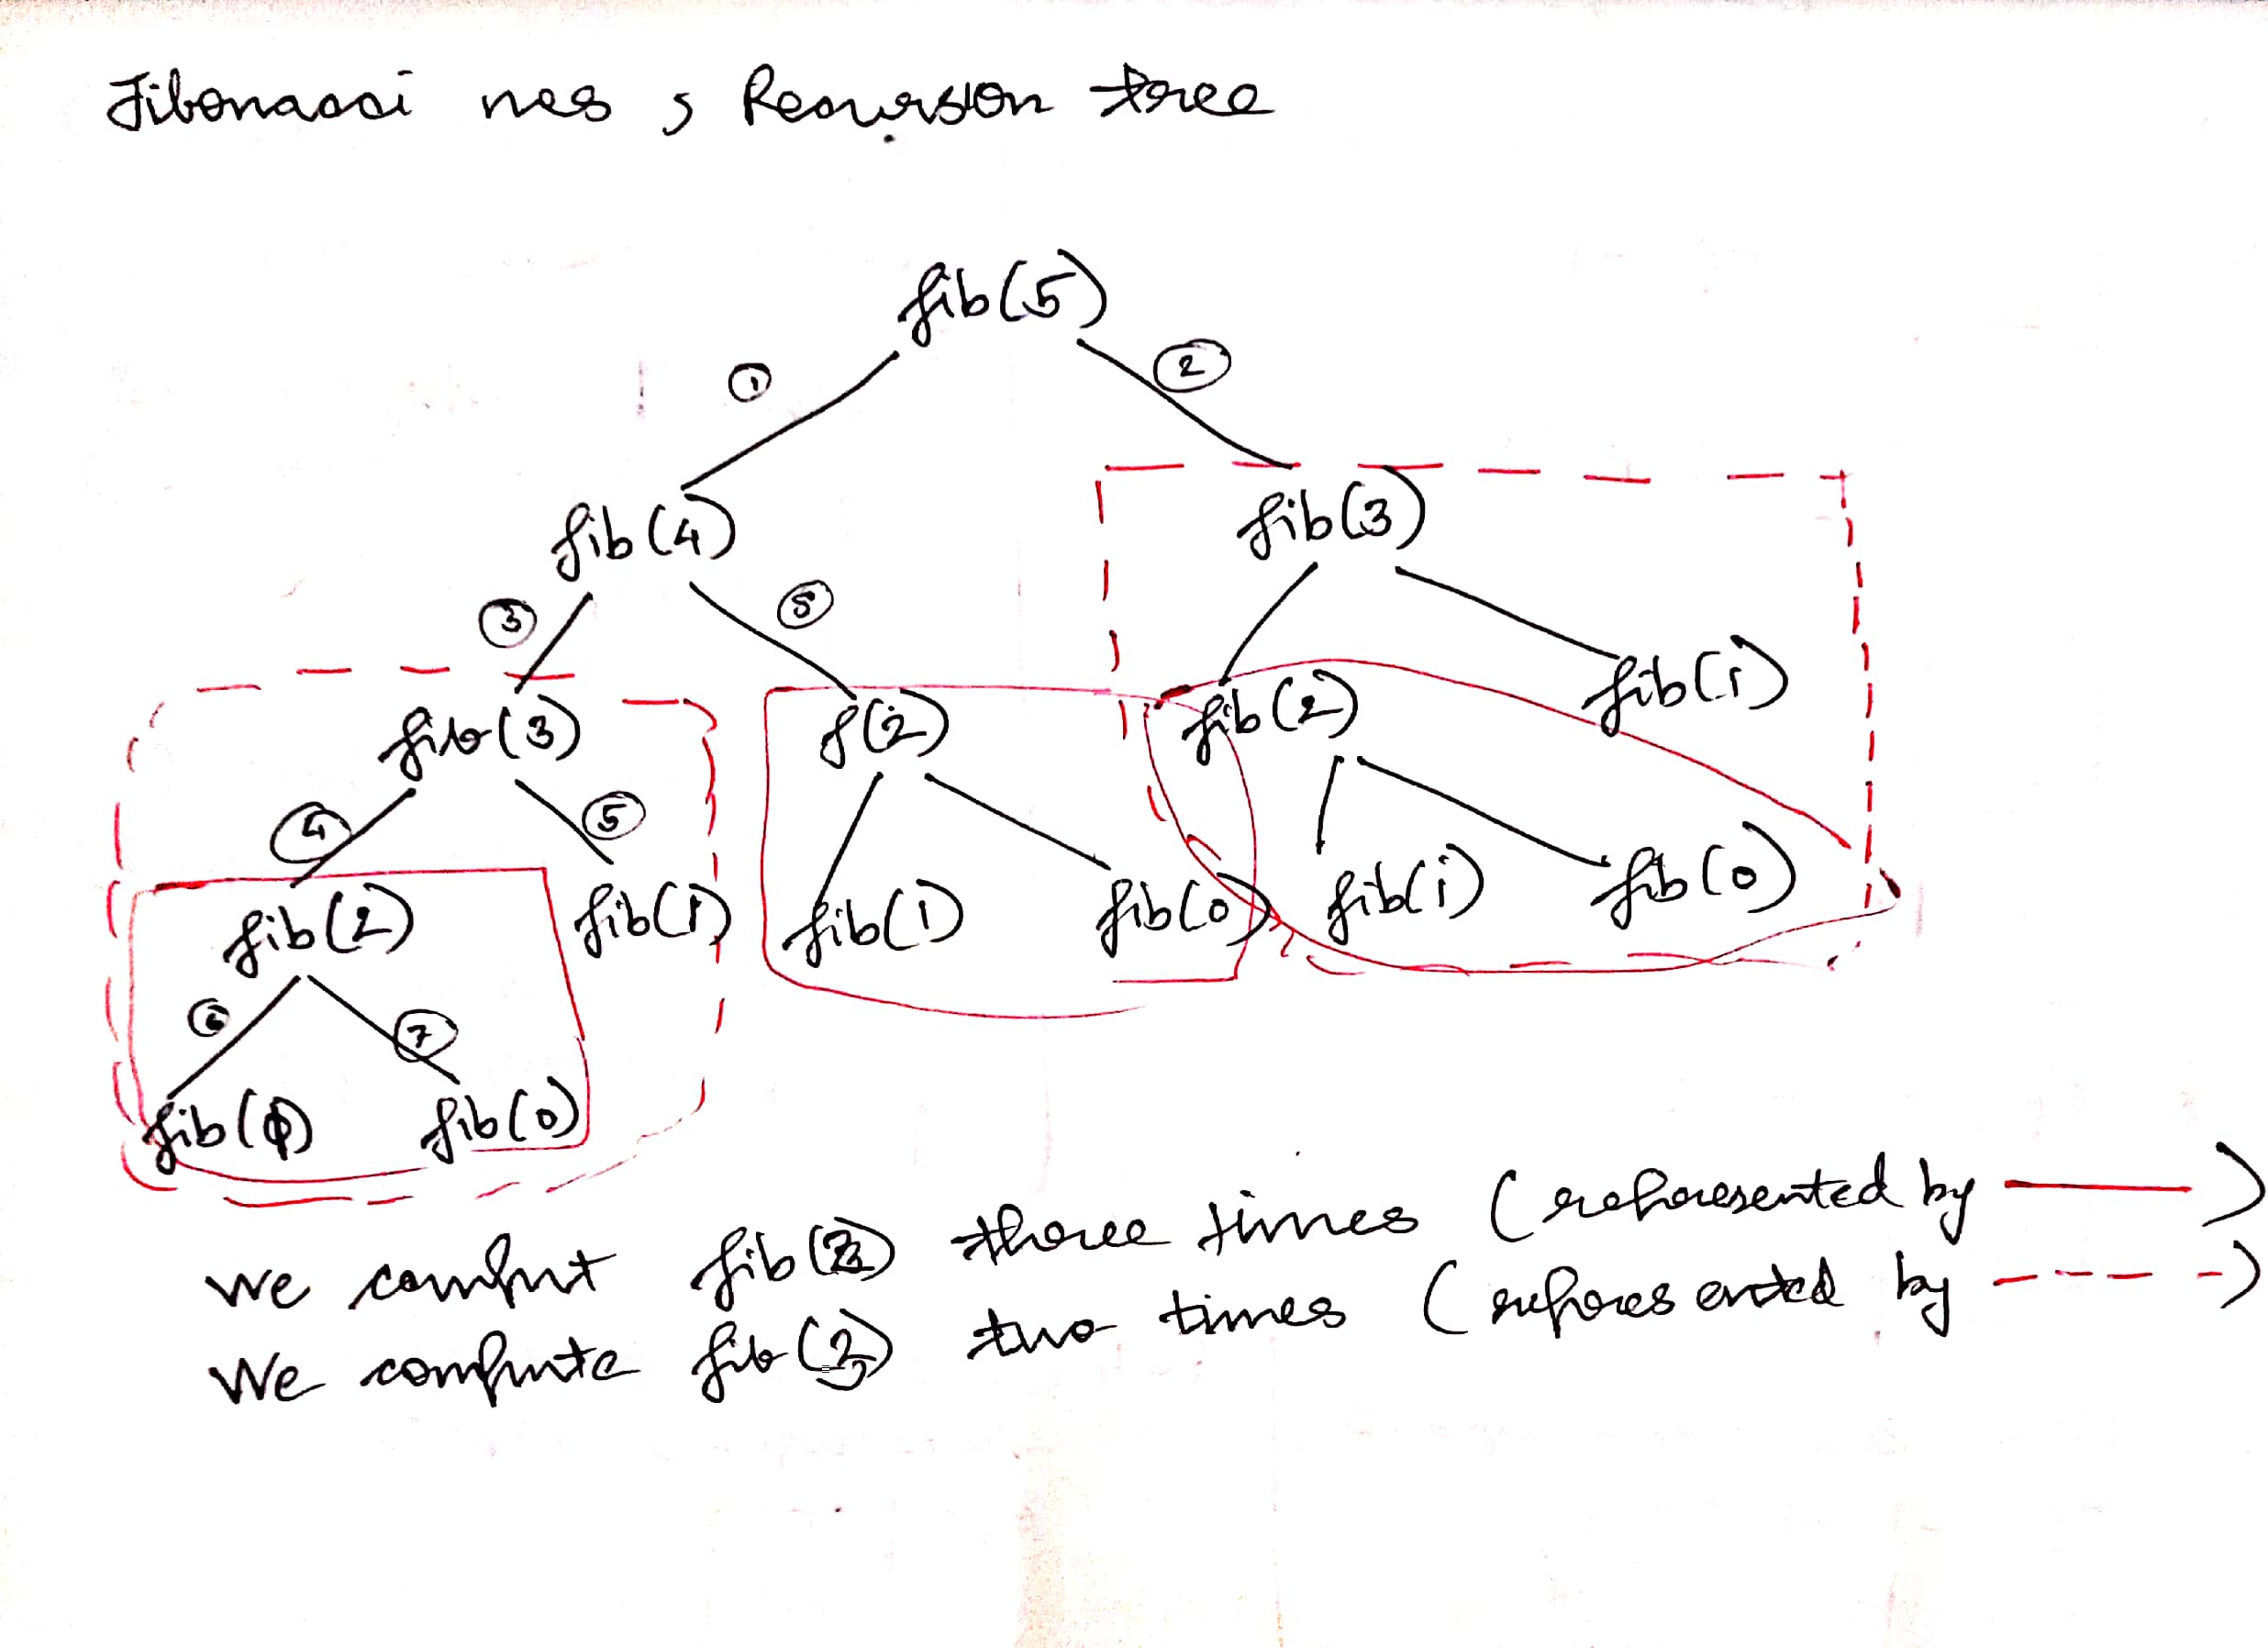 Fibonacci nos , Recursion tree
fib(5)
① ②
fib(4) fib(3)
③ ⑤
fib(3) f(2) fib(2) fib(1)
④ ⑤
fib(2) fib(1) fib(1) fib(0) fib(1) fib(0)
⑥ ⑦
fib(1) fib(0)
We comput fib(2) three times (represented by ——)
We compute fib(3) two times (represented by - - - -)